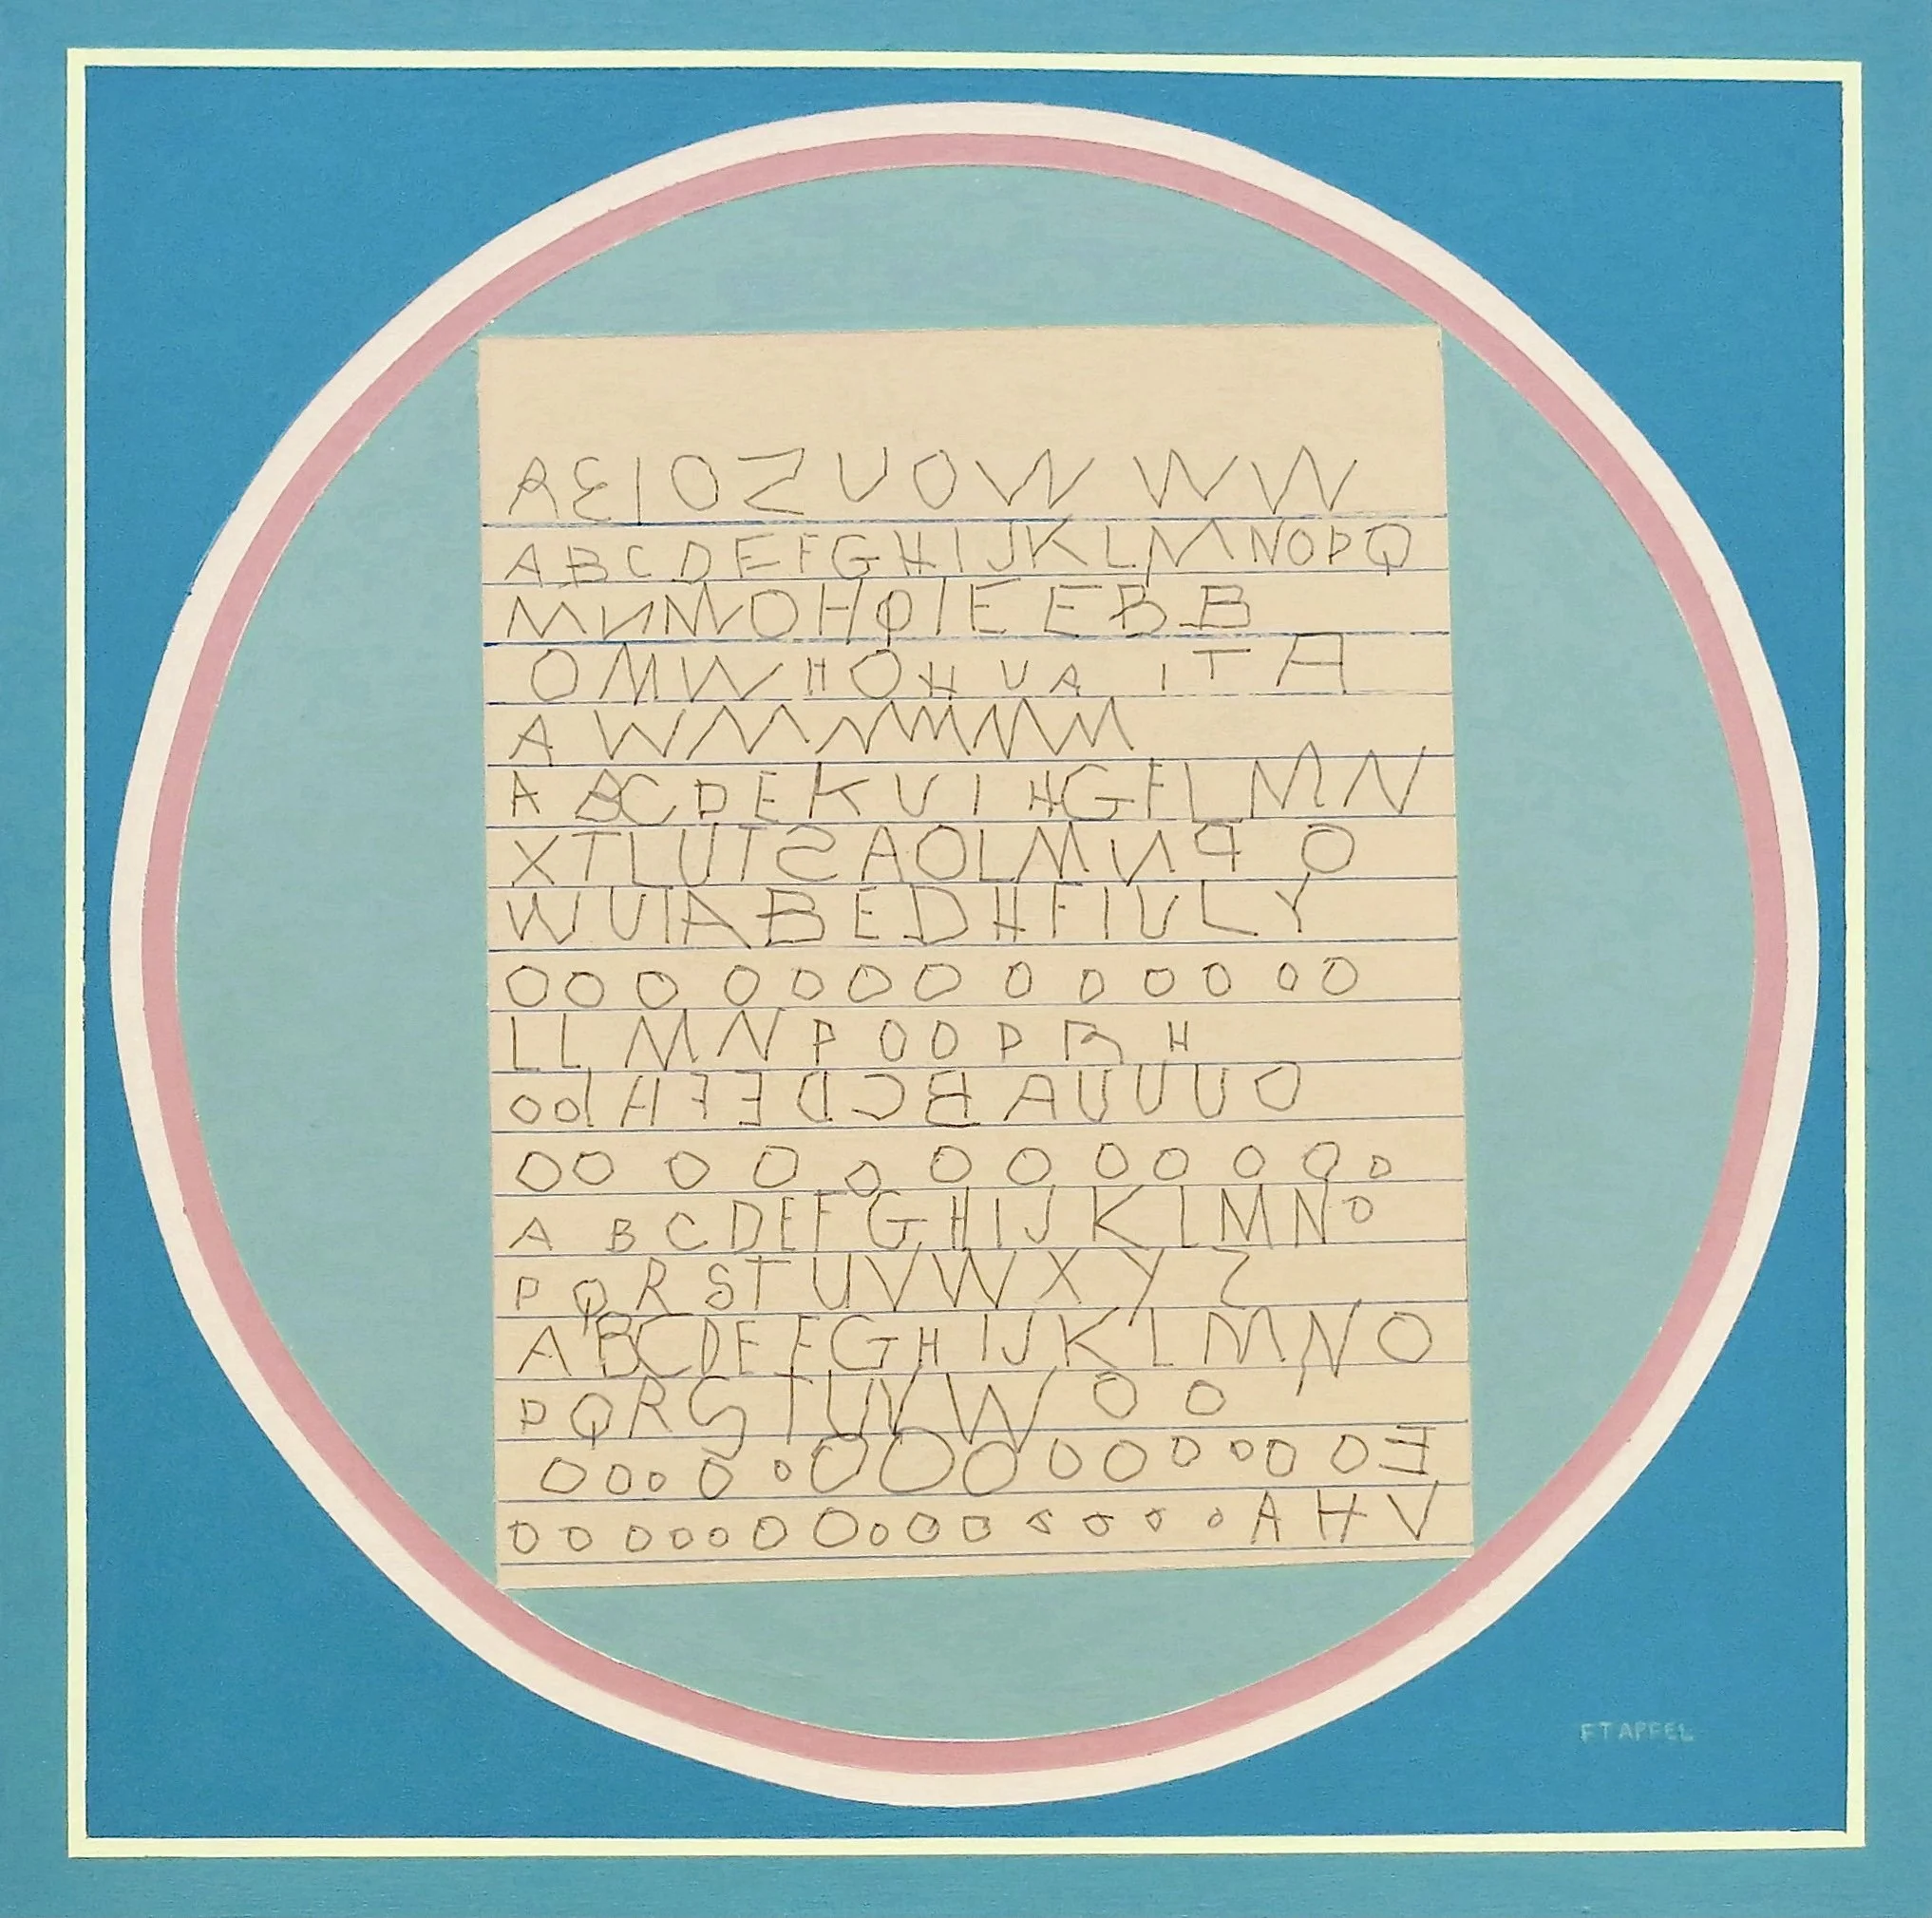 A E I O Z U O W W W
A B C D E F G H I J K L M N O P Q
M N N W O H Φ I E E B B
O M W H O H U A I T A
A W M N M M N M
A B C D E K U I H G F L M N
X T L U T S A O L M N P O
W U T A B E D H F I U L Y
O O O O O O O O O O O O O
L L M N P O O P R H
O O J H F E D C B A U U U O
O O O O O O O O O O O O
A B C D E F G H I J K L M N O
P Q R S T U V W X Y Z
A B C D E F G H I J K L M N O
P Q R S T U V W O O
O O O O O O O O O O O O O O E
O O O O O O O O O O O O O O A H V
F T APFEL